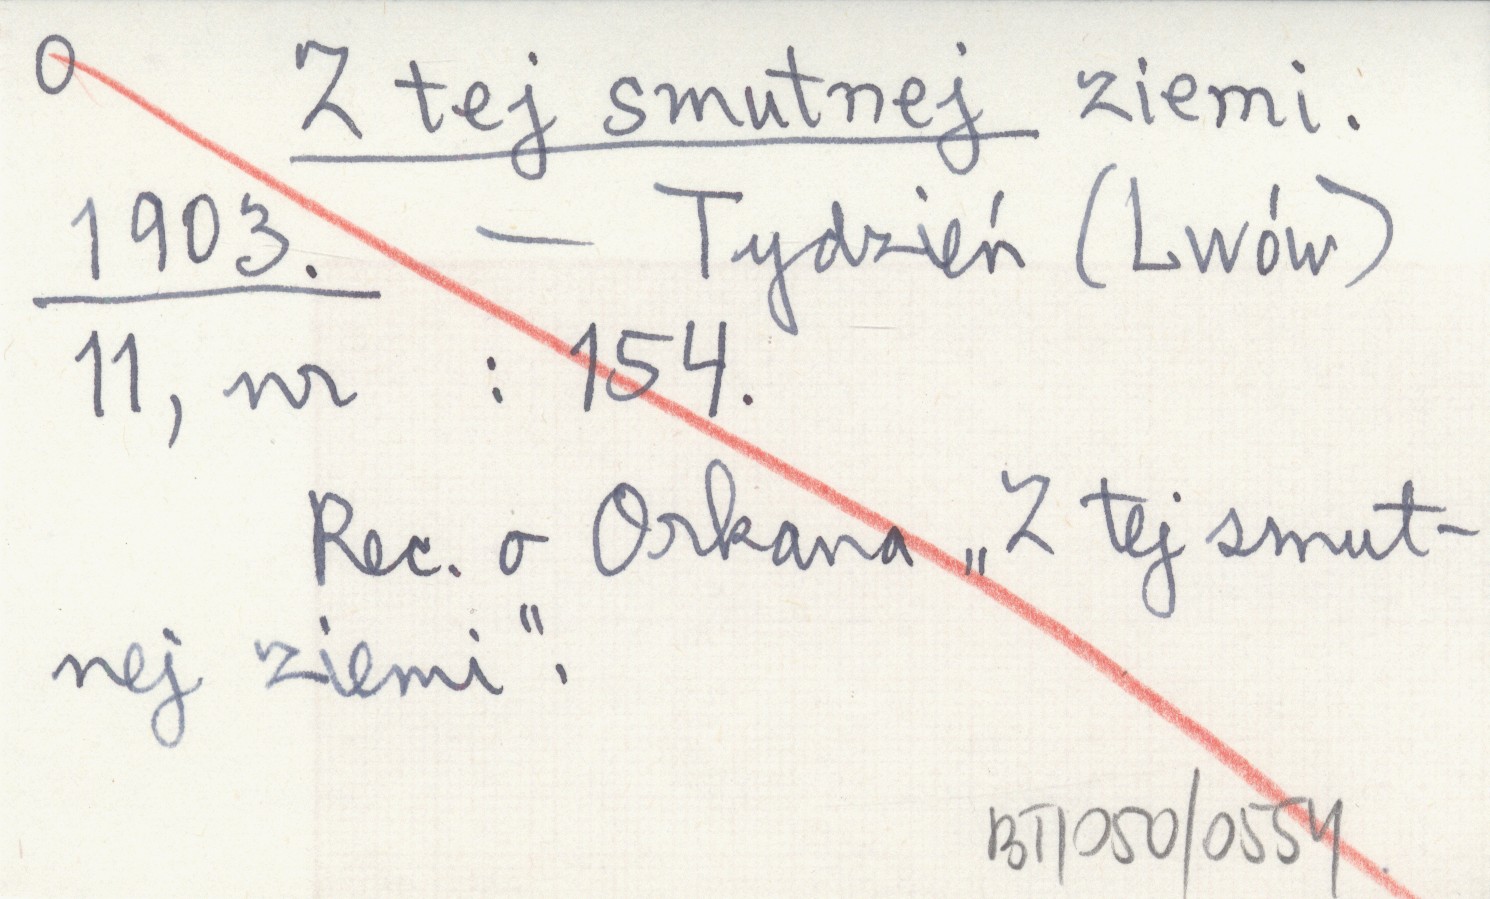 O Z tej smutnej ziemi.
1903. — Tydzień (Lwów)
11, nr : 154.
Rec. o Orkana „Z tej smut-
nej ziemi".
BT/050/0554